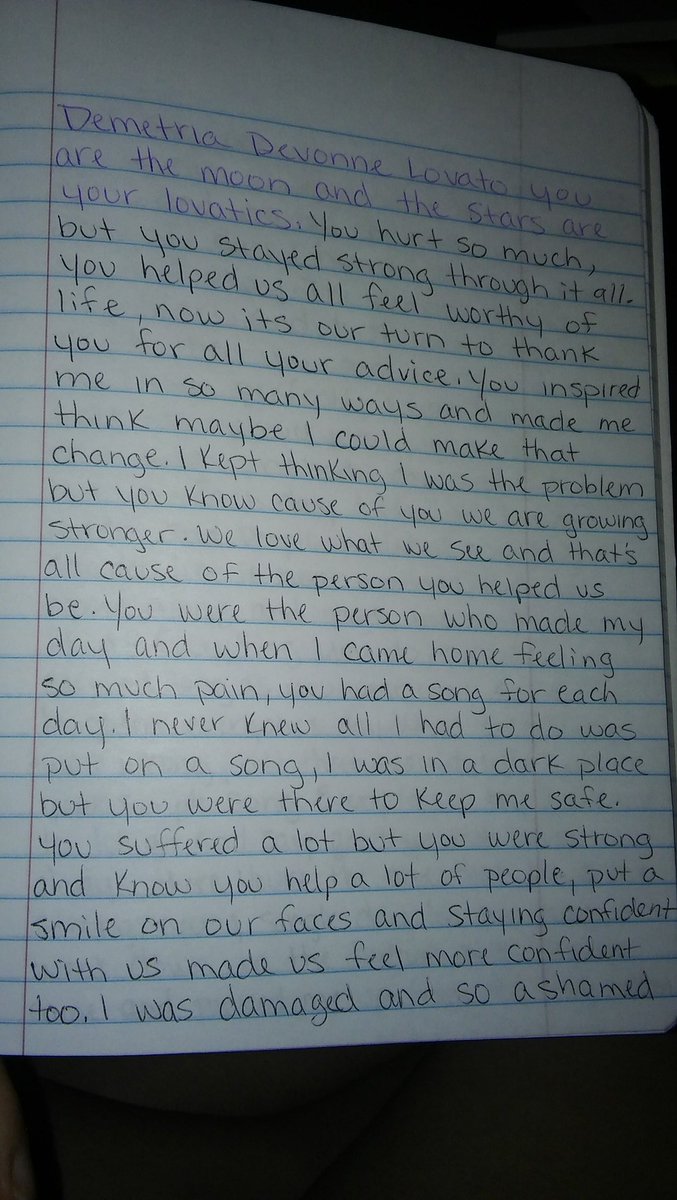 Demetria Devonne Lovato you
are the moon and the stars are
your lovatics. You hurt so much,
but you stayed strong through it all.
you helped us all feel worthy of
life, now its our turn to thank
you for all your advice. You inspired
me in so many ways and made me
think maybe I could make that
change. I kept thinking I was the problem
but you know cause of you we are growing
stronger. We love what we see and that's
all cause of the person you helped us
be. You were the person who made my
day and when I came home feeling
so much pain, you had a song for each
day. I never knew all I had to do was
put on a song, I was in a dark place
but you were there to keep me safe.
you suffered a lot but you were strong
and know you help a lot of people, put a
smile on our faces and staying confident
with us made us feel more confident
too. I was damaged and so ashamed